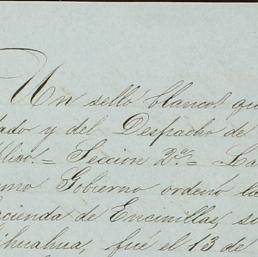 Un sello blanco. que
tado y del Despacho de
blico. = Seccion 2ª. = La
emo Gobierno ordenó la
cienda de Encinillas, si
hihuahua, fué el 13 de